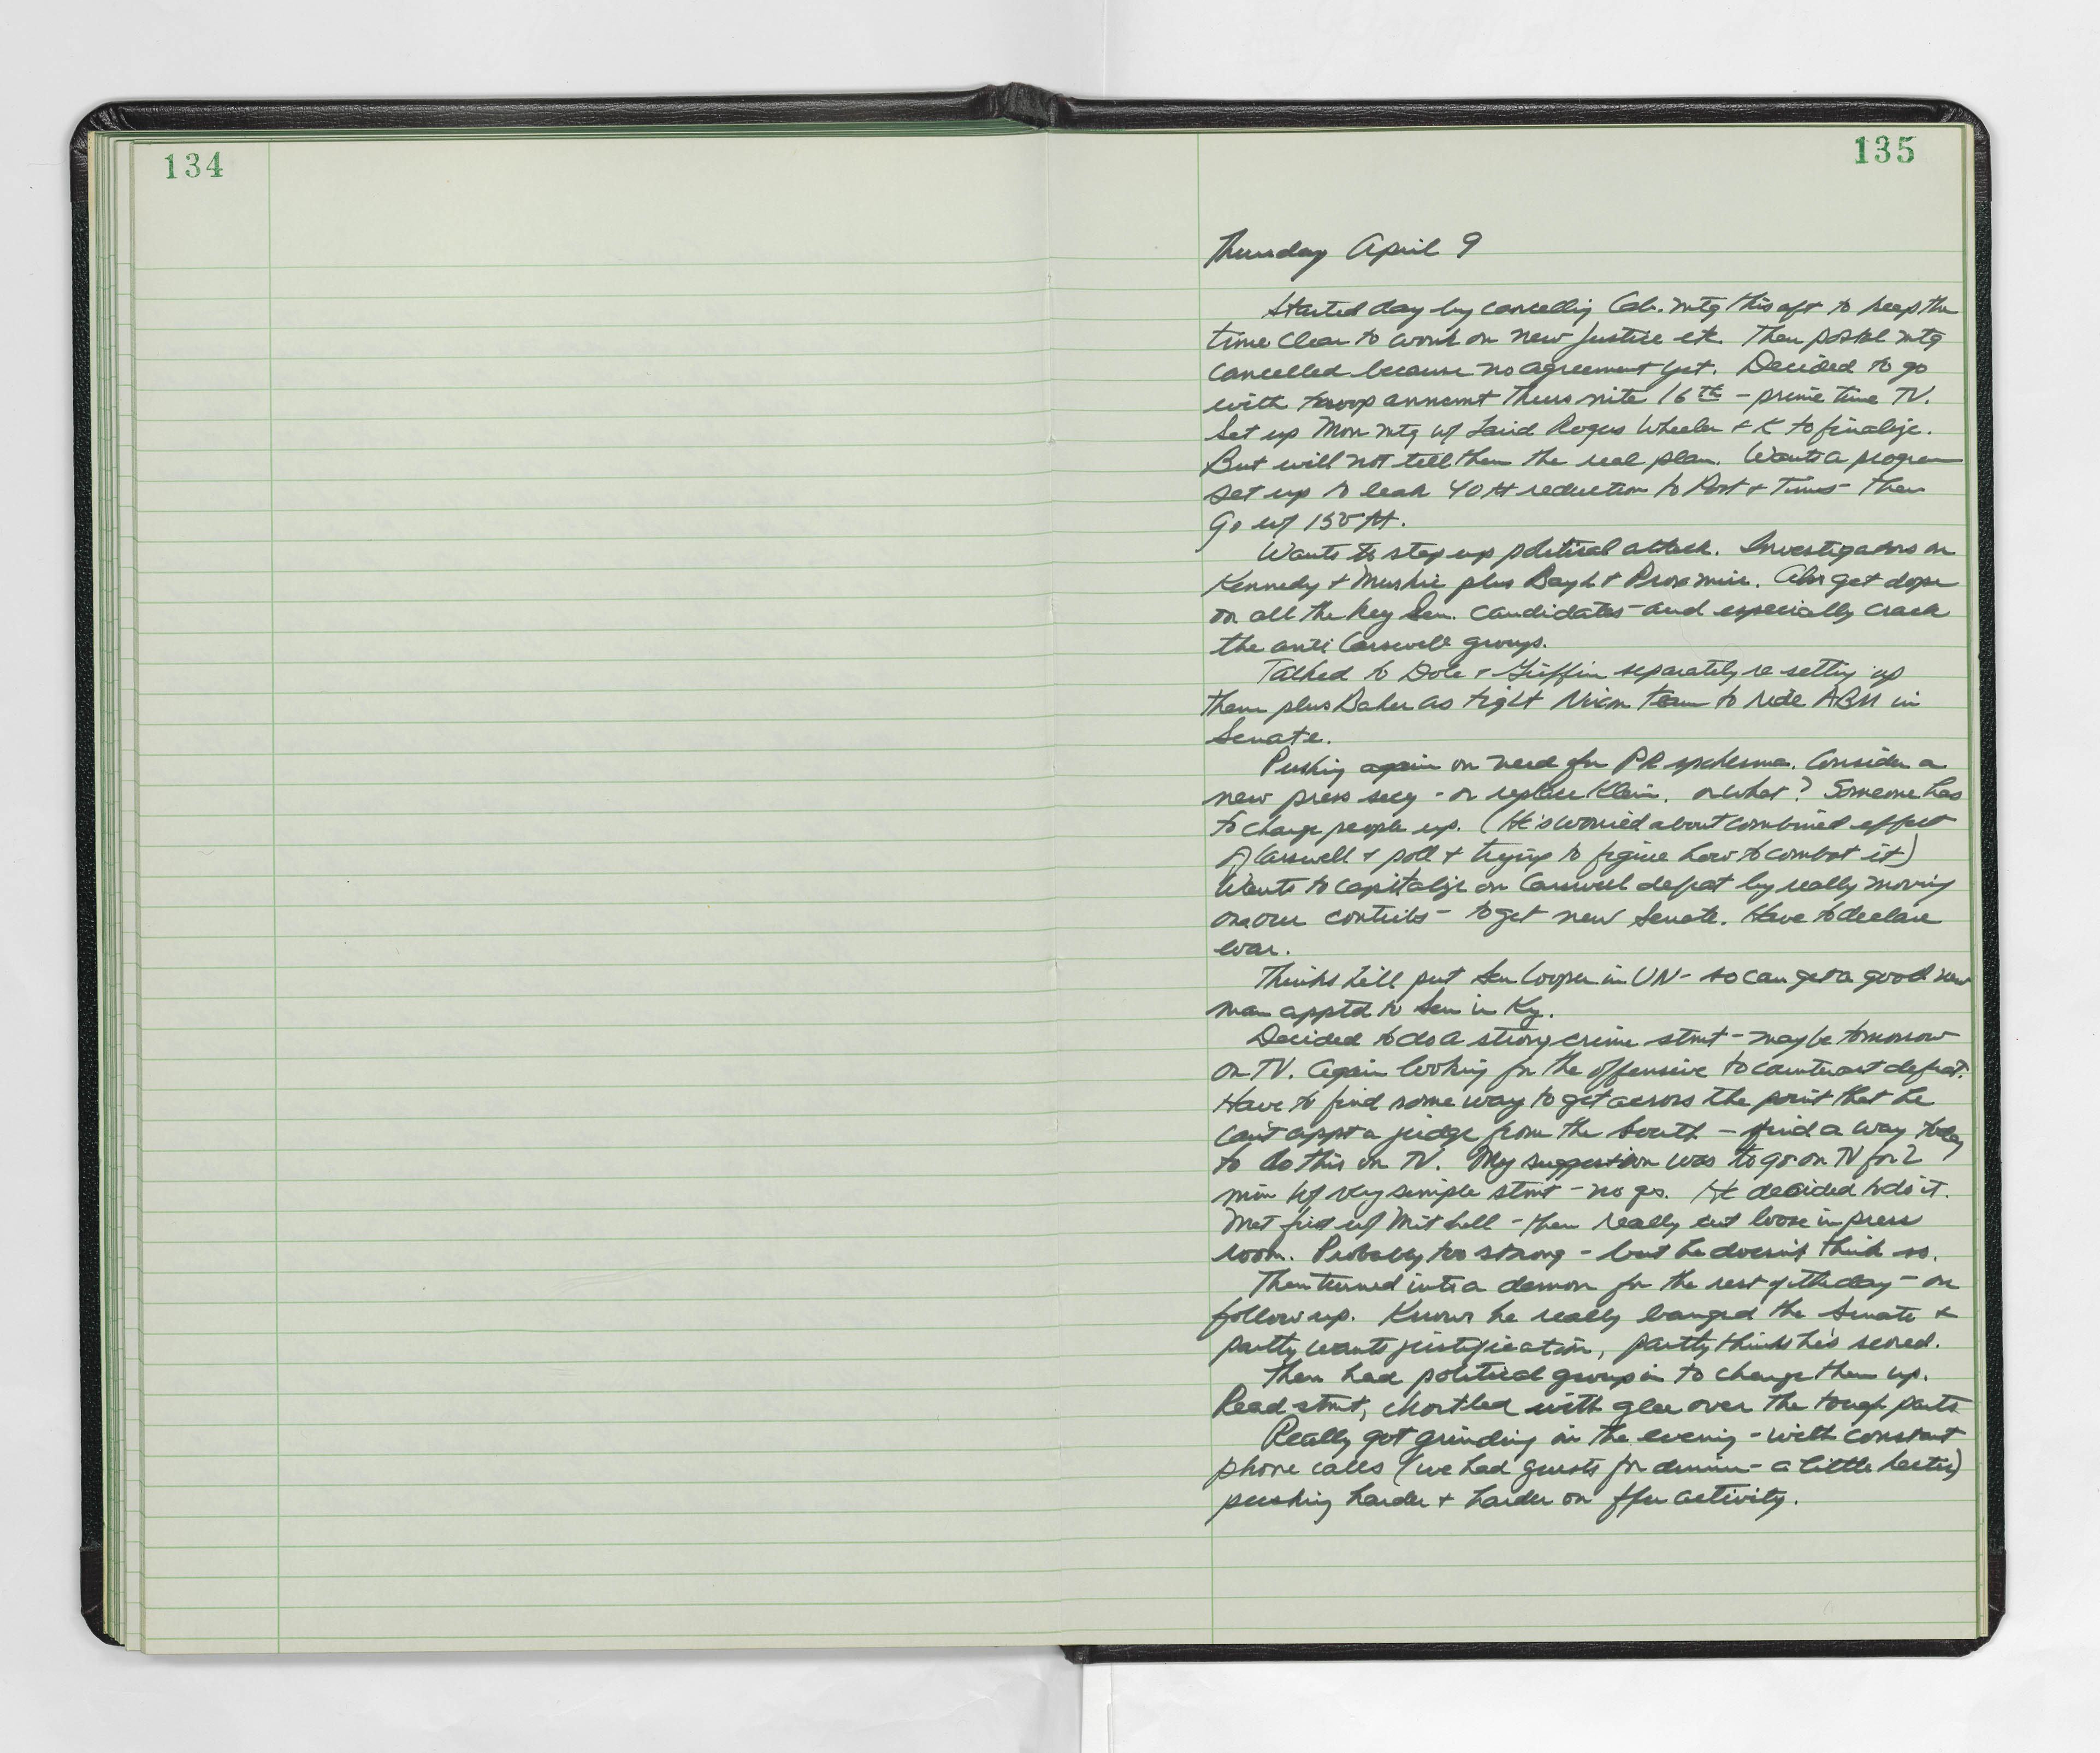 134
135
Thursday April 9
Started day by cancelling Cab. mtg this aft to keep the
time clear to work on new Justice etc. Then postal mtg
cancelled because no agreement yet. Decided to go
with troop anncmt Thurs nite 16th - prime time TV.
Set up Mon mtg w/ Laird Rogers Wheeler & K to finalize.
But will not tell them the real plan. Wants a program
set up to leak 40 M reduction to Post & Times - then
go w/ 150 M.
Wants to step up political attack. Investigators on
Kennedy & Muskie plus Bayh & Proxmire. Also get dope
on all the key Sen. candidates - and especially crack
the anti Carswell groups.
Talked to Dole & Griffin separately re setting up
them plus Baker as tight Nixon team to ride ABM in
Senate.
Pushing again on need for PR spokesma. Consider a
new press secy - or replace Klein. or what? Someone has
to charge people up. (He's worried about combined effect
of Carswell & poll & trying to figure how to combat it)
Wants to capitalize on Carswell defeat by really moving
on our contribs - to get new Senate. Have to declare
war.
Thinks he'll put Sen Cooper in UN - so can get a good new
man apptd to Sen in Ky.
Decided to do a strong crime stmt - maybe tomorrow
on TV. Again looking for the offensive to counteract defeat.
Have to find some way to get across the point that he
can't appt a judge from the South - find a way today
to do this on TV. My suggestion was to go on TV for 2
min w/ very simple stmt - no qs. He decided to do it.
Met first w/ Mitchell - then really cut loose in press
room. Probably too strong - but he doesn't think so.
Then turned into a demon for the rest of the day - on
follow up. Knows he really banged the Senate &
partly wants justification, partly thinks he's scored.
Then had political group in to charge them up.
Read stmt, chortled with glee over the tough parts
Really got grinding in the evening - with constant
phone calls (we had guests for dinner - a little hectic)
pushing harder & harder on ffu activity.